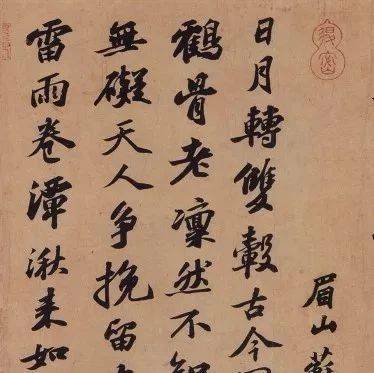 眉山蘇
日月轉雙轂古今
鶴骨老凜然不知
無礙天人爭挽留
雷雨卷潭湫来如